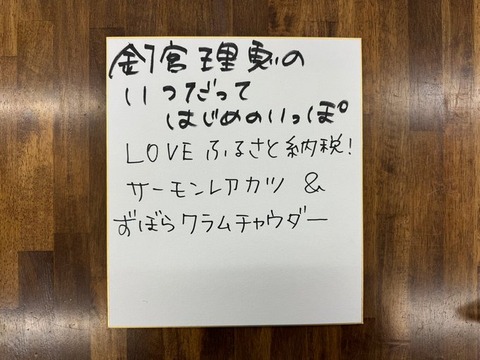 釘宮理恵の
いつだって
はじめのいっぽ
LOVE ふるさと納税!
サーモンレアカツ &
ずぼらクラムチャウダー